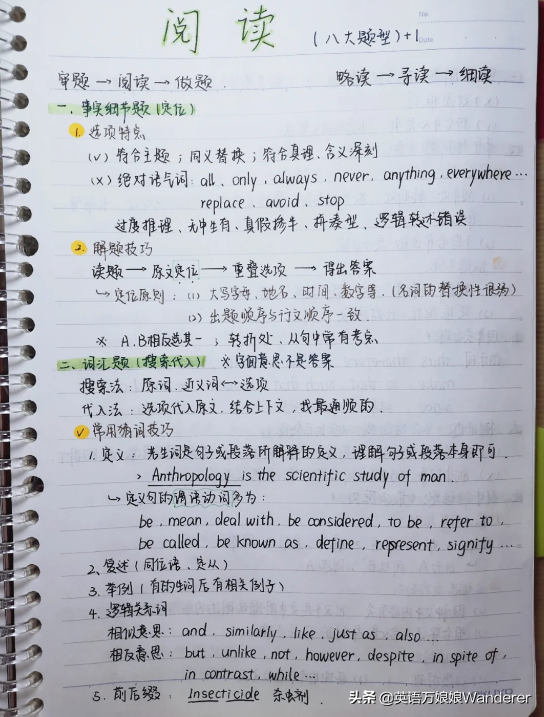 No
Date
阅 读 (八大题型)+1
审题 → 阅读 → 做题. 略读 → 寻读 → 细读
一、事实细节题(定位)
1. 选项特点
(√) 符合主题；同义替换；符合真理、含义深刻
(×) 绝对语气词: all, only, always, never, anything, everywhere…
replace, avoid, stop
过度推理、无中生有、真假掺半、拼凑型、逻辑转述错误
2. 解题技巧
读题 → 原文定位 → 重叠选项 → 得出答案
↳ 定位原则: (1) 大写字母、地名、时间、数字等. (名词的替换性很弱)
(2) 出题顺序与行文顺序一致
※ A.B相反选其一；转折处、从句中常有考点
二、词汇题(搜索代入) ※字面意思不是答案
搜索法: 原词、近义词↔选项
代入法: 选项代入原文, 结合上下文, 找最通顺的.
√ 常用猜词技巧
1. 定义: 生词是句子或段落所解释的定义, 理解句子或段落本身即可.
> Anthropology is the scientific study of man.
↳ 定义句的谓语动词多为:
be, mean, deal with, be considered, to be, refer to,
be called, be known as, define, represent, signify…
2. 复述(同位语、定从)
3. 举例(有的生词后有相关例子)
4. 逻辑关系词
相似意思: and, similarly, like, just as, also…
相反意思: but, unlike, not, however, despite, in spite of,
in contrast, while…
5. 前后缀: Insecticide 杀虫剂
头条 @英语万娘娘Wanderer